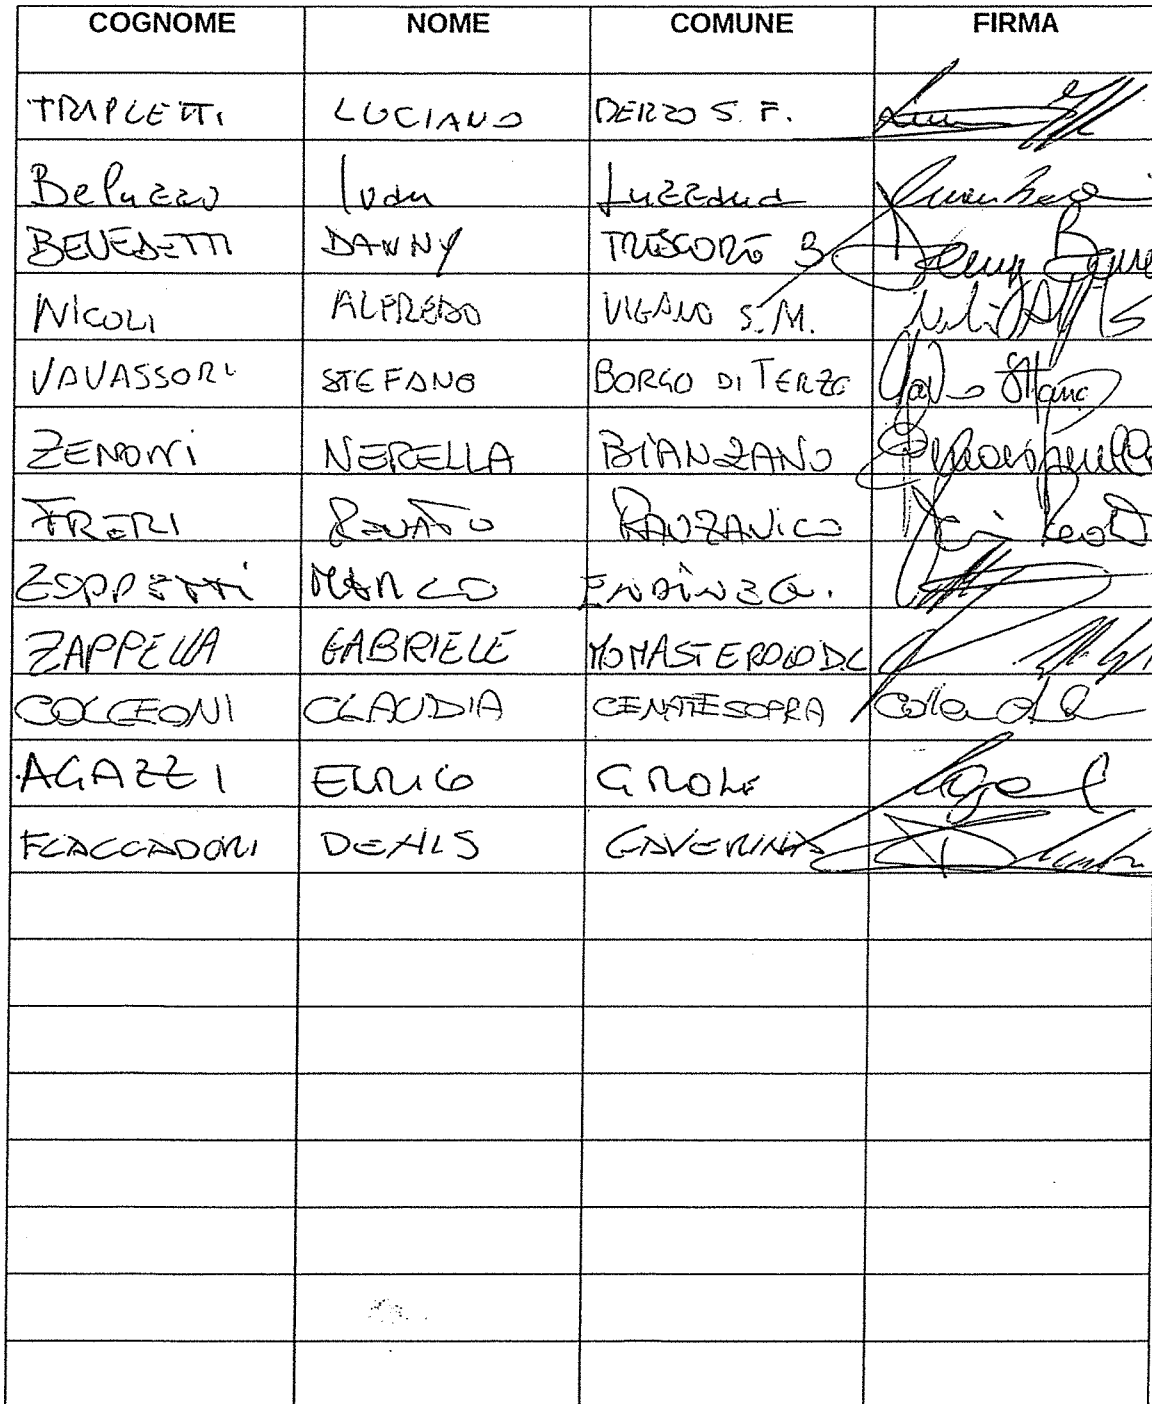 COGNOME NOME COMUNE FIRMA
TRIPLETTI LUCIANO BERZO S. F.
Beluzzo Ivan Luzzana
BENEDETTI DANNY TRESCORE B
NICOLI ALFREDO VIGANO S.M.
VAVASSORI STEFANO BORGO DI TERZO
ZENONI NERELLA BIANZANO
FRERI RENATO RANZANICO
ZOPPETTI MARCO ENDINE G.
ZAPPELLA GABRIELE MONASTEROLO D.C
COLLEONI CLAUDIA CENATE SOPRA
AGAZZI ENRICO GRONE
FLACCADORI DENIS GAVERINA